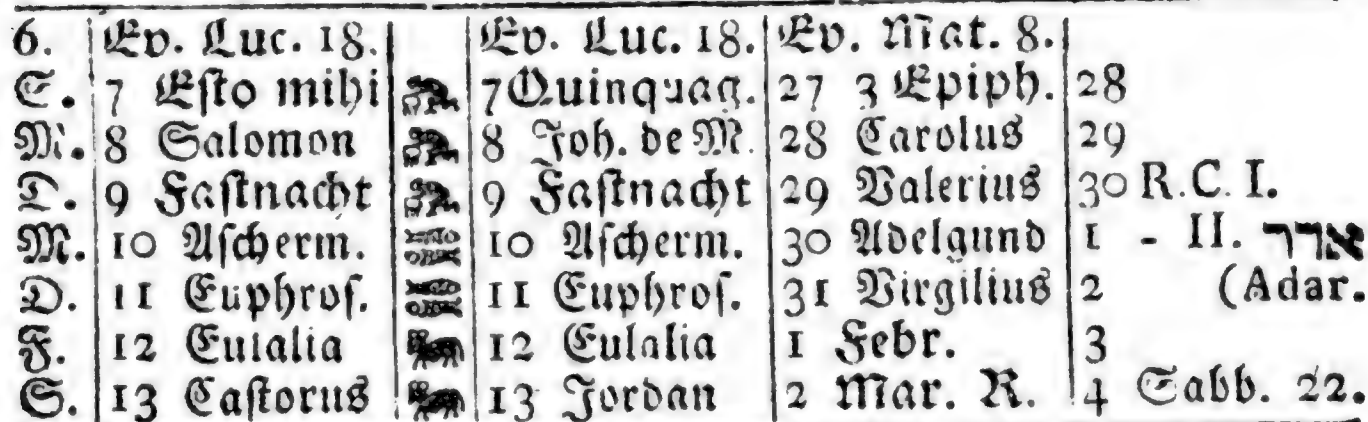 6. Ev. Luc. 18. Ev. Luc. 18. Ev. Mat. 8.
S. 7 Esto mihi 7 Quinquag. 27 3 Epiph. 28
M. 8 Salomon 8 Joh. de M. 28 Carolus 29
D. 9 Fastnacht 9 Fastnacht 29 Valerius 30 R.C. I.
M. 10 Ascherm. 10 Ascherm. 30 Adelgund 1 - II. אדר
D. 11 Euphros. 11 Euphros. 31 Virgilius 2 (Adar.
F. 12 Eulalia 12 Eulalia 1 Febr. 3
S. 13 Castorus 13 Jordan 2 Mar. R. 4 Sabb. 22.